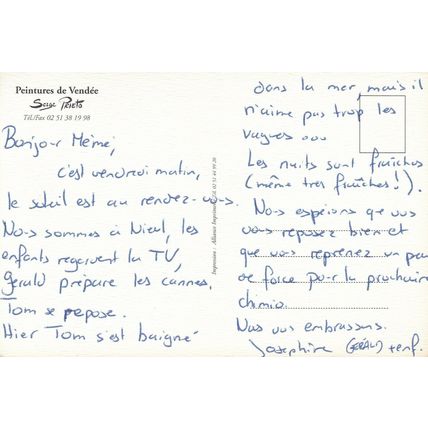 Peintures de Vendée
Serge Prieto
Tél./Fax 02 51 38 19 98
Bonjour Mémé,
c'est vendredi matin,
le soleil est au rendez-vous.
Nous sommes à Nieul, les
enfants regardent la TV,
Gérald prépare les cannes.
Tom se repose.
Hier Tom s'est baigné
Impression : Alliance Imprimeurs
dans la mer, mais il
n'aime pas trop les
vagues ...
Les nuits sont fraîches
(même très fraîches !).
Nous espérons que vous
vous reposez bien et
que vous reprenez un peu
de force pour la prochaine
chimio.
Nous vous embrassons.
Joséphine (GÉRALD) + enf.